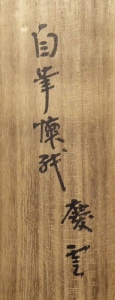 慶雲
自筆懐紙